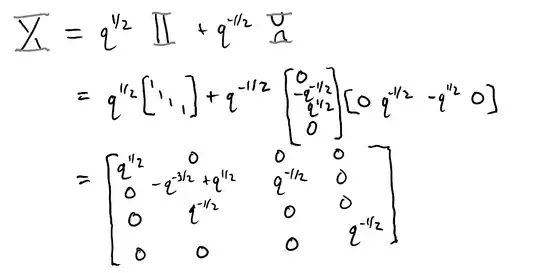 X = q^{1/2} || + q^{-1/2} ∪∩
= q^{1/2} [1 1 1 1] + q^{-1/2} [0 -q^{-1/2} q^{1/2} 0] [0 q^{-1/2} -q^{1/2} 0]
= [q^{1/2} 0 0 0
0 -q^{-3/2}+q^{1/2} q^{-1/2} 0
0 q^{-1/2} 0 0
0 0 0 q^{-1/2}]